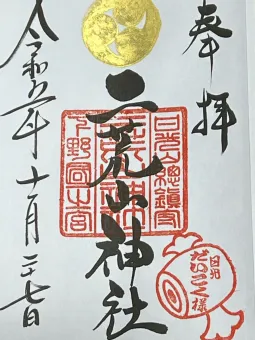 奉拝
日光山總鎮守
二荒山神社
下野國一宮
日光
だいこく様
令和五年十一月二十七日